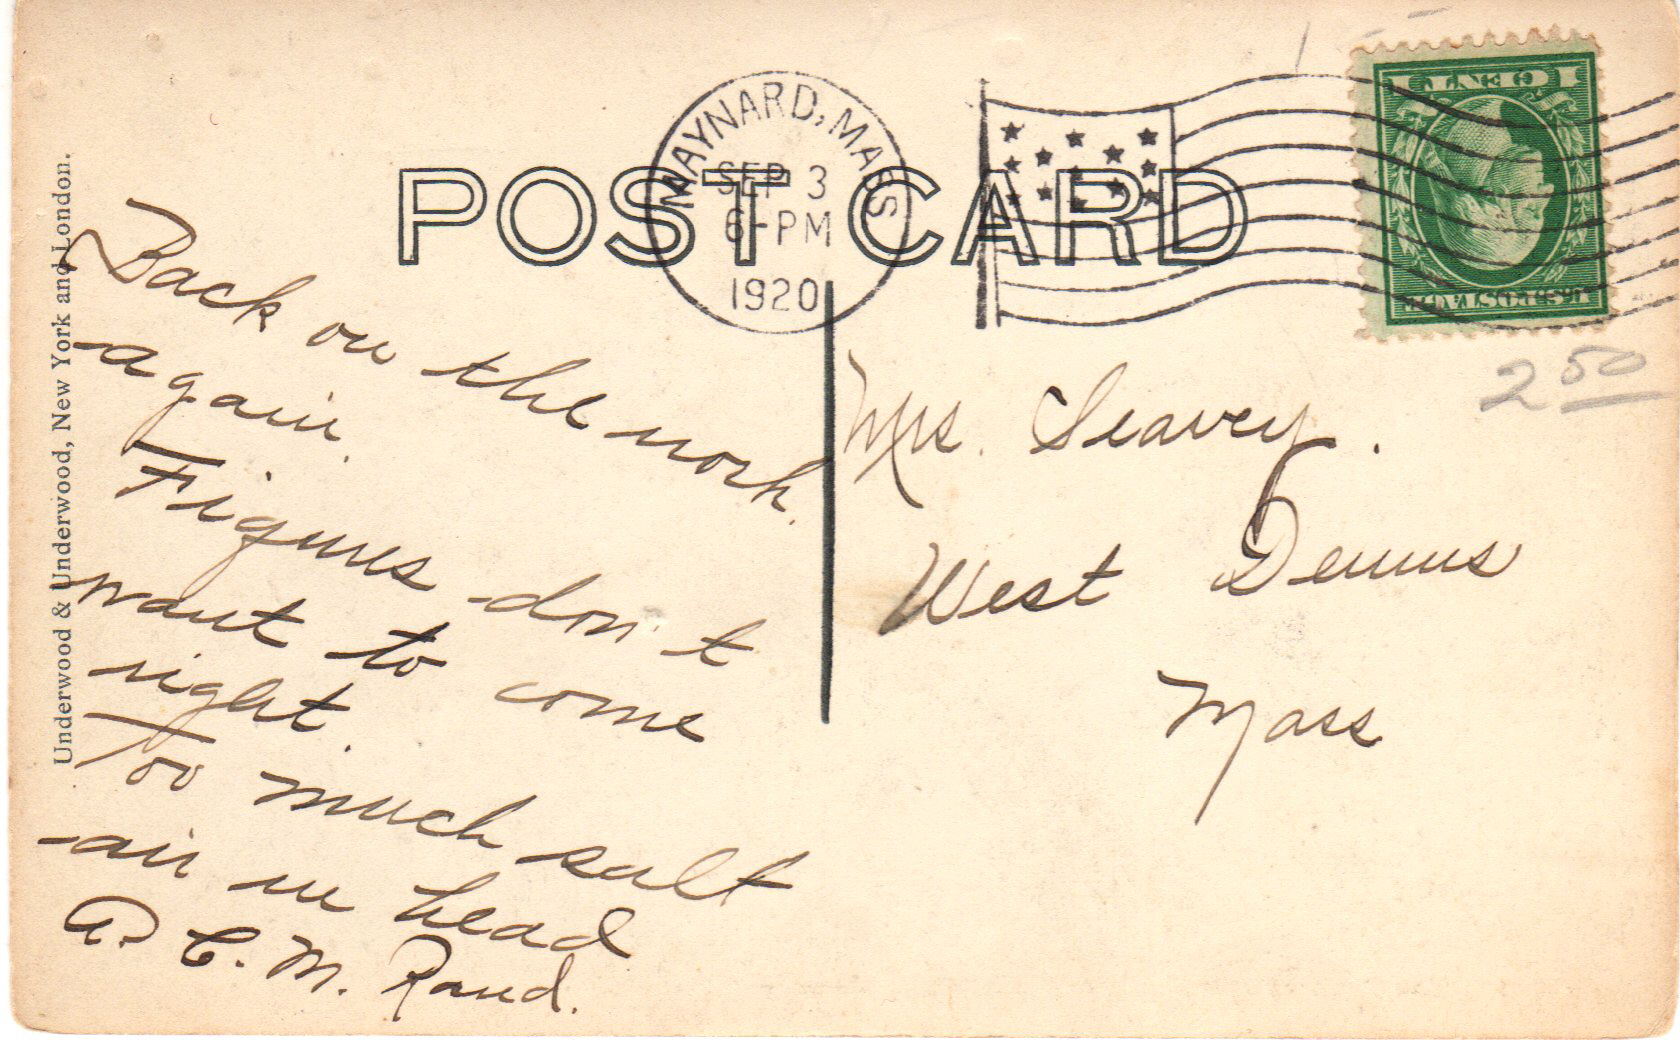 POST CARD
MAYNARD, MASS
SEP 3
6-PM
1920
1 CENT 1
U.S. POSTAGE
2 50
Underwood & Underwood, New York and London.
Back on the work
again.
Figures don't
want to come
right.
Too much salt
air in head
A. C. M. Rand.
Mrs. Seavey.
West Dennis
Mass